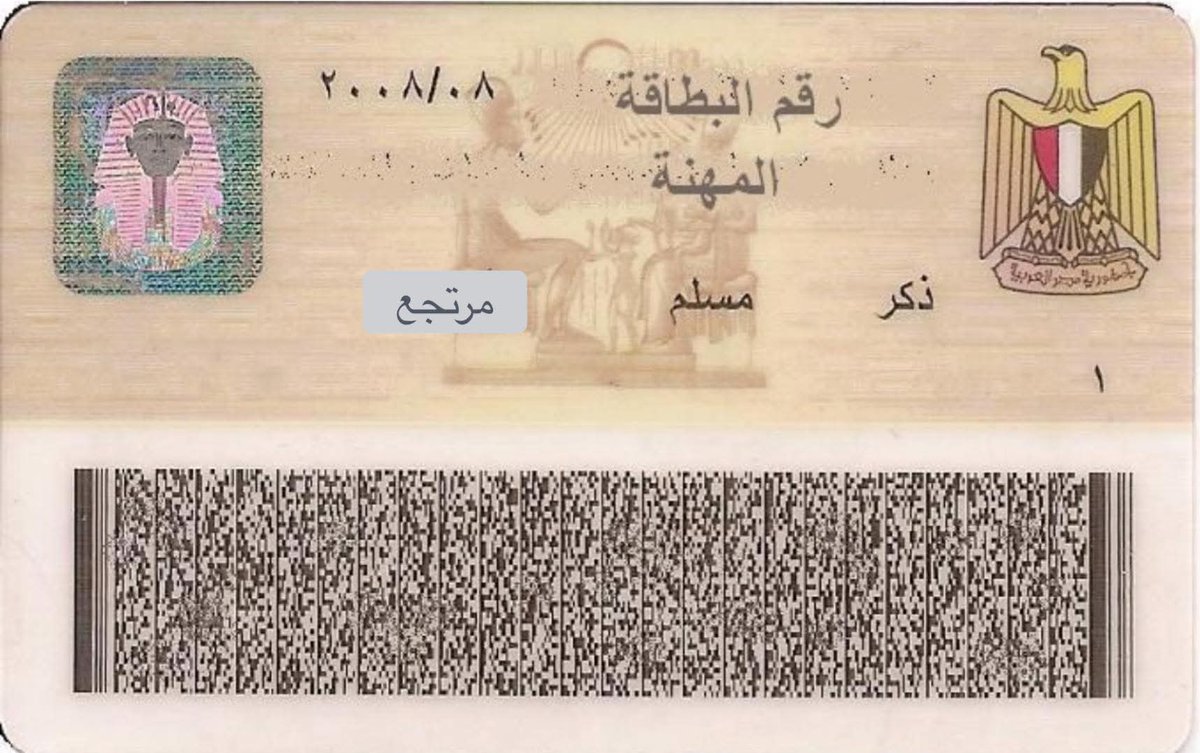 رقم البطاقة ٢٠٠٨/٠٨
المهنة
ذكر مسلم مرتجع
١
جمهورية مصر العربية